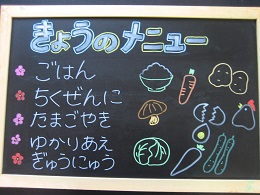 きょうのメニュー
ごはん
ちくぜんに
たまごやき
ゆかりあえ
ぎゅうにゅう